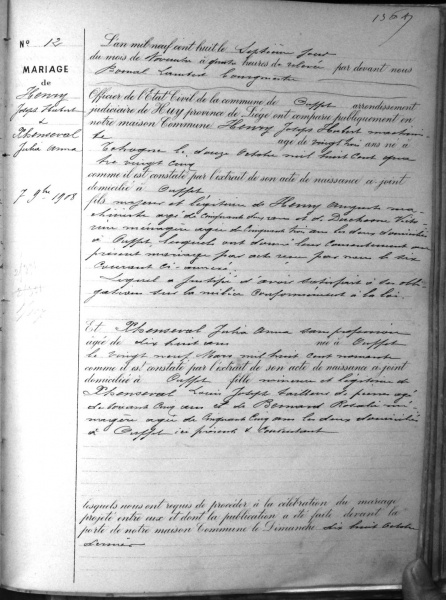 1364
N° 12
MARIAGE
de
Henry
Joseph Hubert
&
Thonseval
Julia Anna
7 9bre 1908
L'an mil neuf cent huit le Septième jour
du mois de Novembre à quatre heures de relevée par devant nous
Lambert
Officier de l'Etat Civil de la commune de Ouffet arrondissement
judiciaire de Huy province de Liége ont comparu publiquement en
notre maison Commune Henry Joseph Hubert machinis
te âgé de vingt trois ans né à
le douze Octobre mil huit cent qua
tre vingt cinq
comme il est constaté par l'extrait de son acte de naissance ci-joint
domicilié à Ouffet
fils majeur et légitime de Henry Auguste ma
chiniste âgé de cinquante ans et de Victo
rine ménagère âgée de cinquante trois ans les deux domiciliés
à Ouffet, lesquels ont donné leur consentement au
présent mariage par acte reçu par nous le six
courant ci-annexé.
Lequel a justifié d'avoir satisfait à ses obli
gations sur la milice conformément à la loi.
Et Thonseval Julia Anna sans profession
âgée de dix huit ans née à Ouffet
le vingt neuf Mars mil huit cent nonante
comme il est constaté par l'extrait de son acte de naissance ci-joint
domiciliée à Ouffet fille mineure et légitime de
Thonseval Louis Joseph tailleur de pierres âgé
de soixante cinq ans et de Bernard Rosalie mé
nagère âgée de cinquante cinq ans les deux domiciliés
à Ouffet ici présents & consentant
lesquels nous ont requis de procéder à la célébration du mariage
projeté entre eux et dont la publication a été faite devant la
porte de notre maison Commune le Dimanche dix huit Octobre
dernier